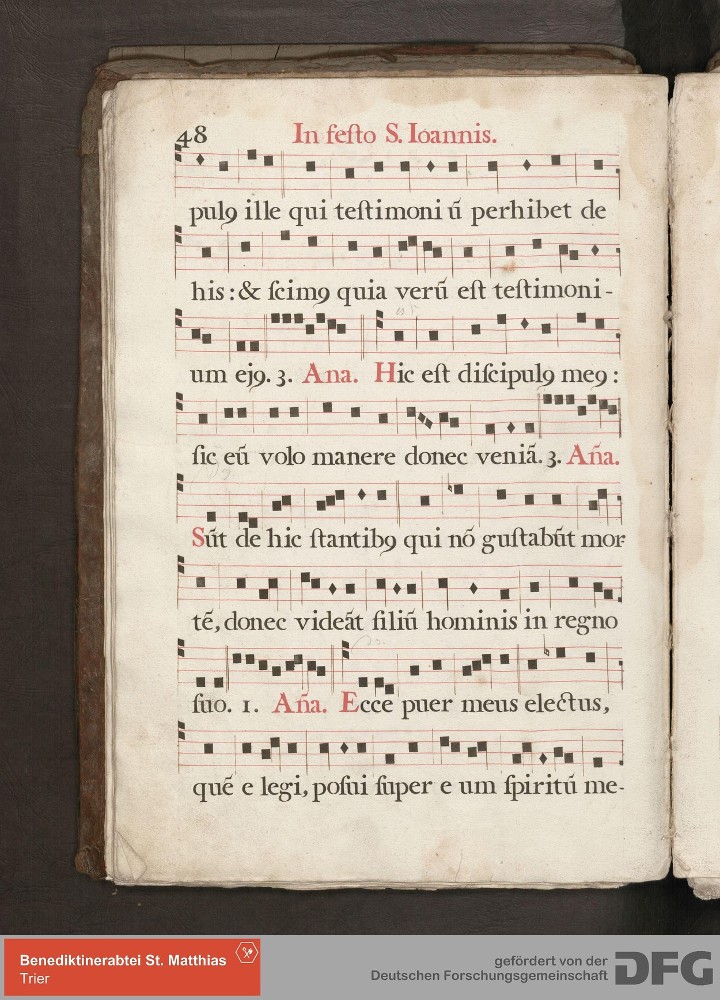 48 In feſto S. Ioannis.
pulꝯ ille qui teſtimoni ū perhibet de
his : & ſcimꝯ quia verū eſt teſtimoni -
um ejꝯ. 3. Ana. Hic eſt diſcipulꝯ meꝯ :
ſic eū volo manere donec veniā. 3. Añã.
Sūt de hic ſtantibꝯ qui nō guſtabūt mor
tē, donec videāt filiū hominis in regno
ſuo. 1. Añã. Ecce puer meus electus,
quē e legi, poſui ſuper e um ſpiritū me-
Benediktinerabtei St. Matthias
Trier
gefördert von der
Deutschen Forschungsgemeinschaft DFG